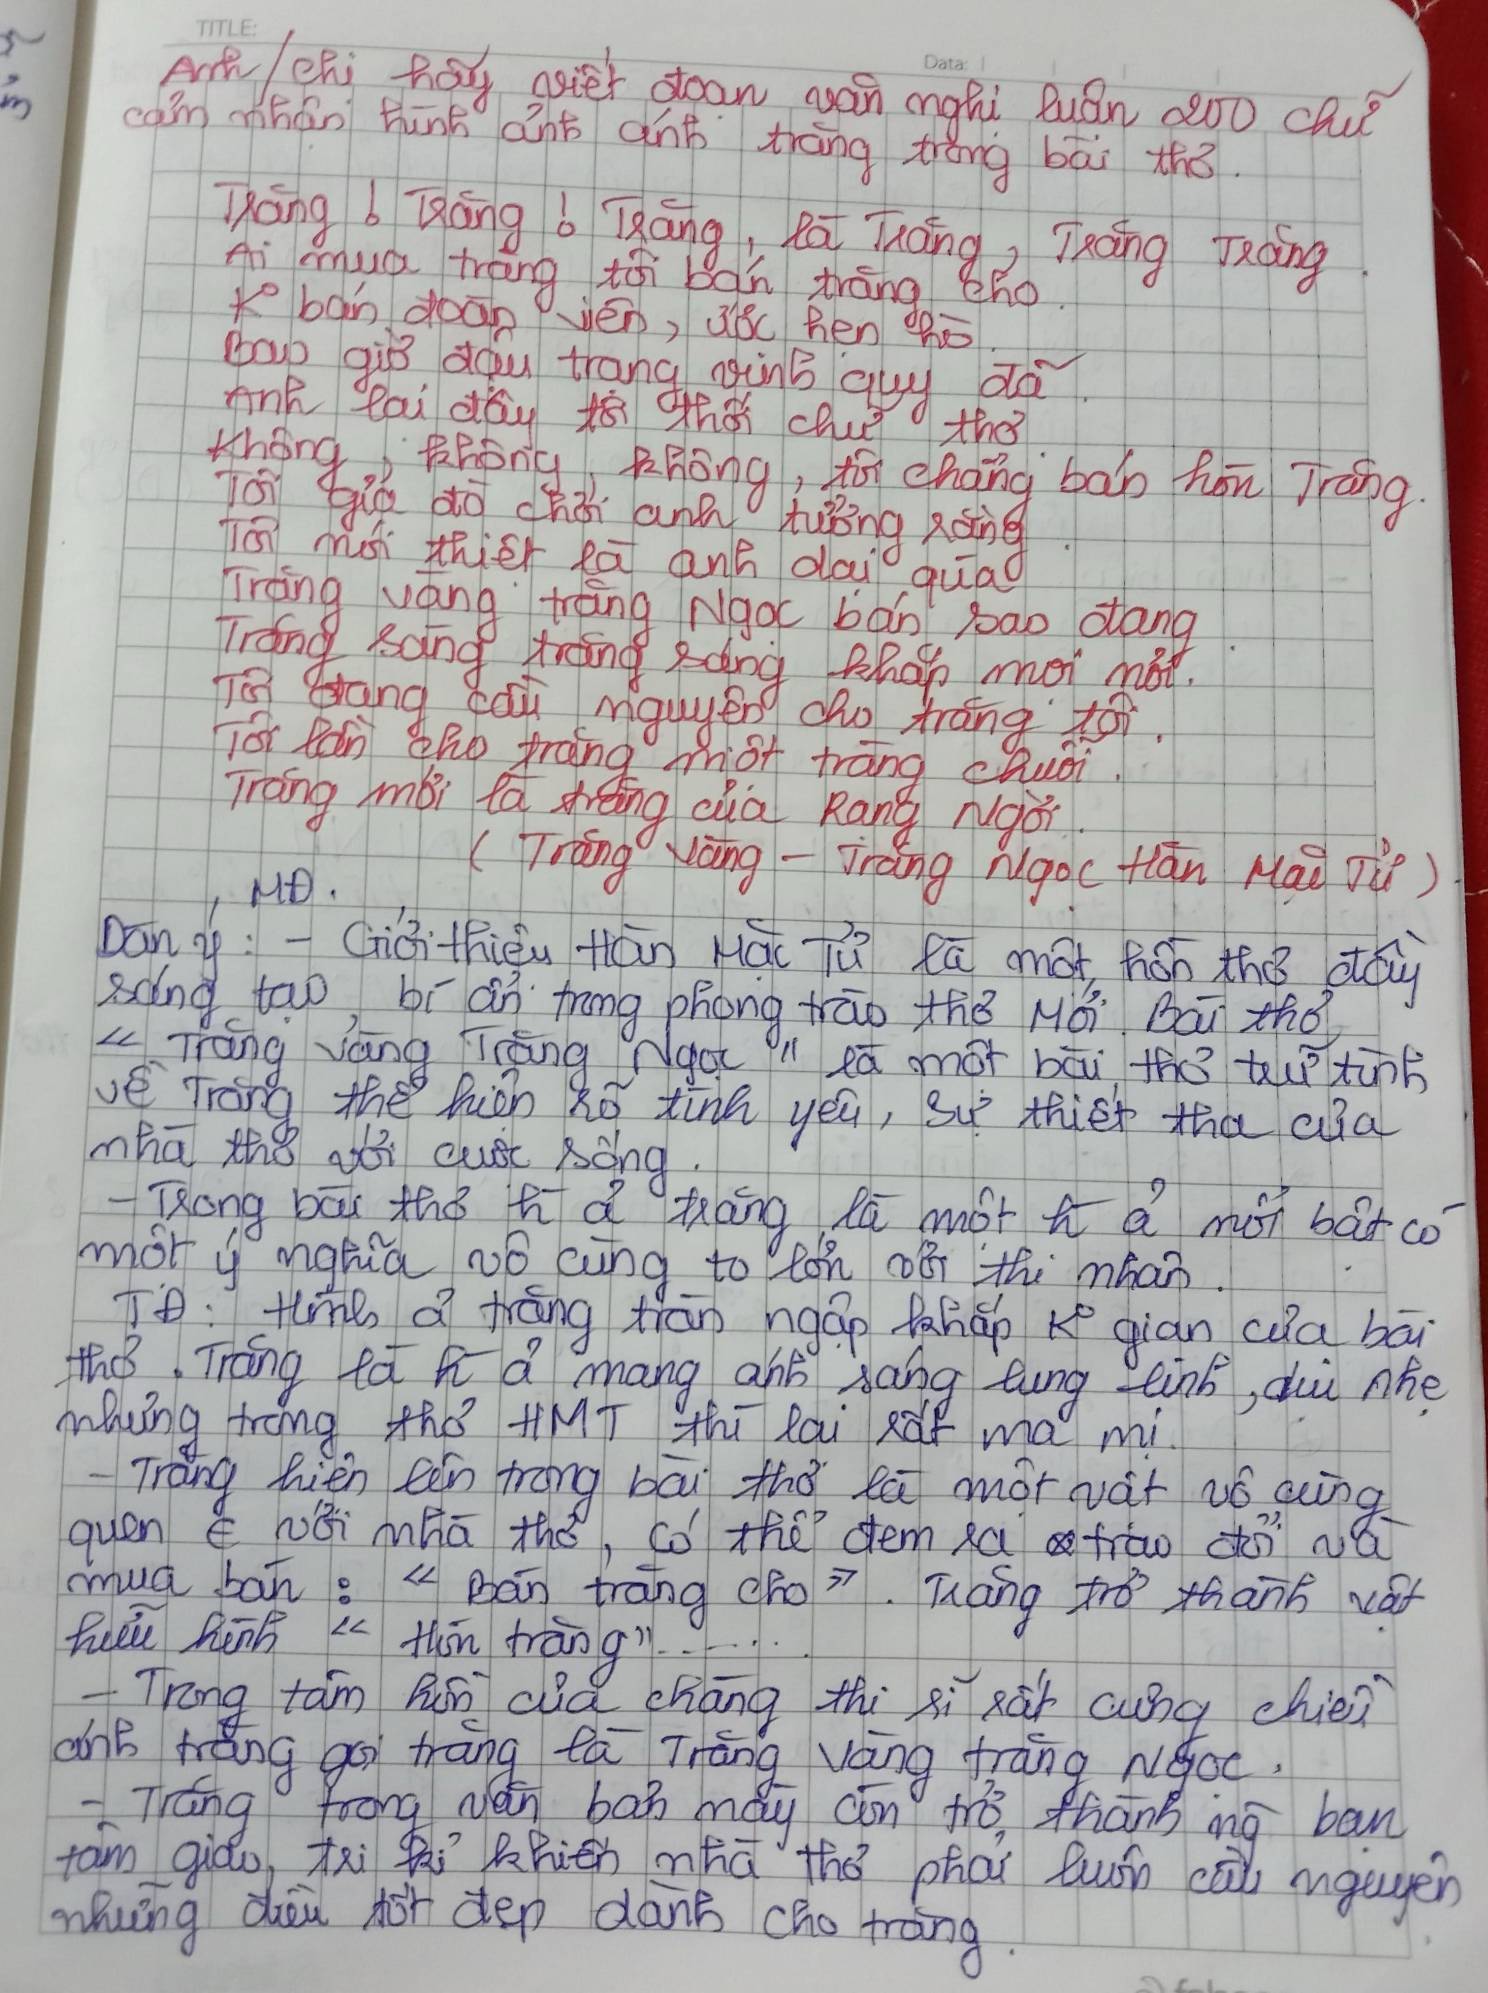 TITLE:
Data:
Anh/chị hãy viết đoạn văn nghị luận 200 chữ
cảm nhận hình ảnh ánh trăng trong bài thơ.
Trăng! Trăng! Trăng, là Trăng, Trăng Trăng.
Ai mua trăng tôi bán trăng cho.
K° bán đoàn viên, ước hẹn hò.
Bao giờ đậu trạng vinh quy đã.
Anh lại đây tôi thối chữ thơ
Không, không, không, tôi chẳng bán hồn Trăng.
Tôi giả đò chơi anh tưởng rằng.
Tôi nói thiệt là anh dại quá
Trăng vàng trăng Ngọc bán sao đang.
Trăng sáng trăng sáng khắp mọi nơi.
Tôi đang cầu nguyện cho trăng tôi.
Tôi lần cho trăng một tràng chuỗi.
Trăng mới là trăng của Rạng Ngời.
( Trăng Vàng - Trăng Ngọc Hàn Mặc Tử )
MĐ.
Dàn ý: - Giới thiệu Hàn Mặc Tử là một hồn thơ đầy
sáng tạo, bí ẩn trong phong trào thơ Mới. Bài thơ
" Trăng vàng Trăng Ngọc " là một bài thơ trữ tình
về Trăng thể hiện rõ tình yêu, sự thiết tha của
nhà thơ với cuộc sống.
- Trong bài thơ h ả trăng là một h ả nổi bật có
một ý nghĩa vô cùng to lớn với thi nhân.
TĐ: Hình ả trăng tràn ngập khắp K° gian của bài
thơ. Trăng là h ả mang ánh sáng lung linh, dịu nhẹ
nhưng trong thơ HMT thì lại rất ma mị.
- Trăng hiện lên trong bài thơ là một vật vô cùng
quen € với nhà thơ, có thể đem ra trao đổi và
mua bán: " Bán trăng cho ". Trăng trở thành vật
hữu hình " Hồn trăng".......
- Trong tâm hồn của chàng thi sĩ rất cưng chiều
ánh trăng gọi trăng là Trăng Vàng trăng Ngọc.
- Trăng trong văn bản này còn trở thành ng bạn
tâm giao, tri kỉ khiến nhà thơ phải luôn cầu nguyện
những điều tốt đẹp dành cho trăng.